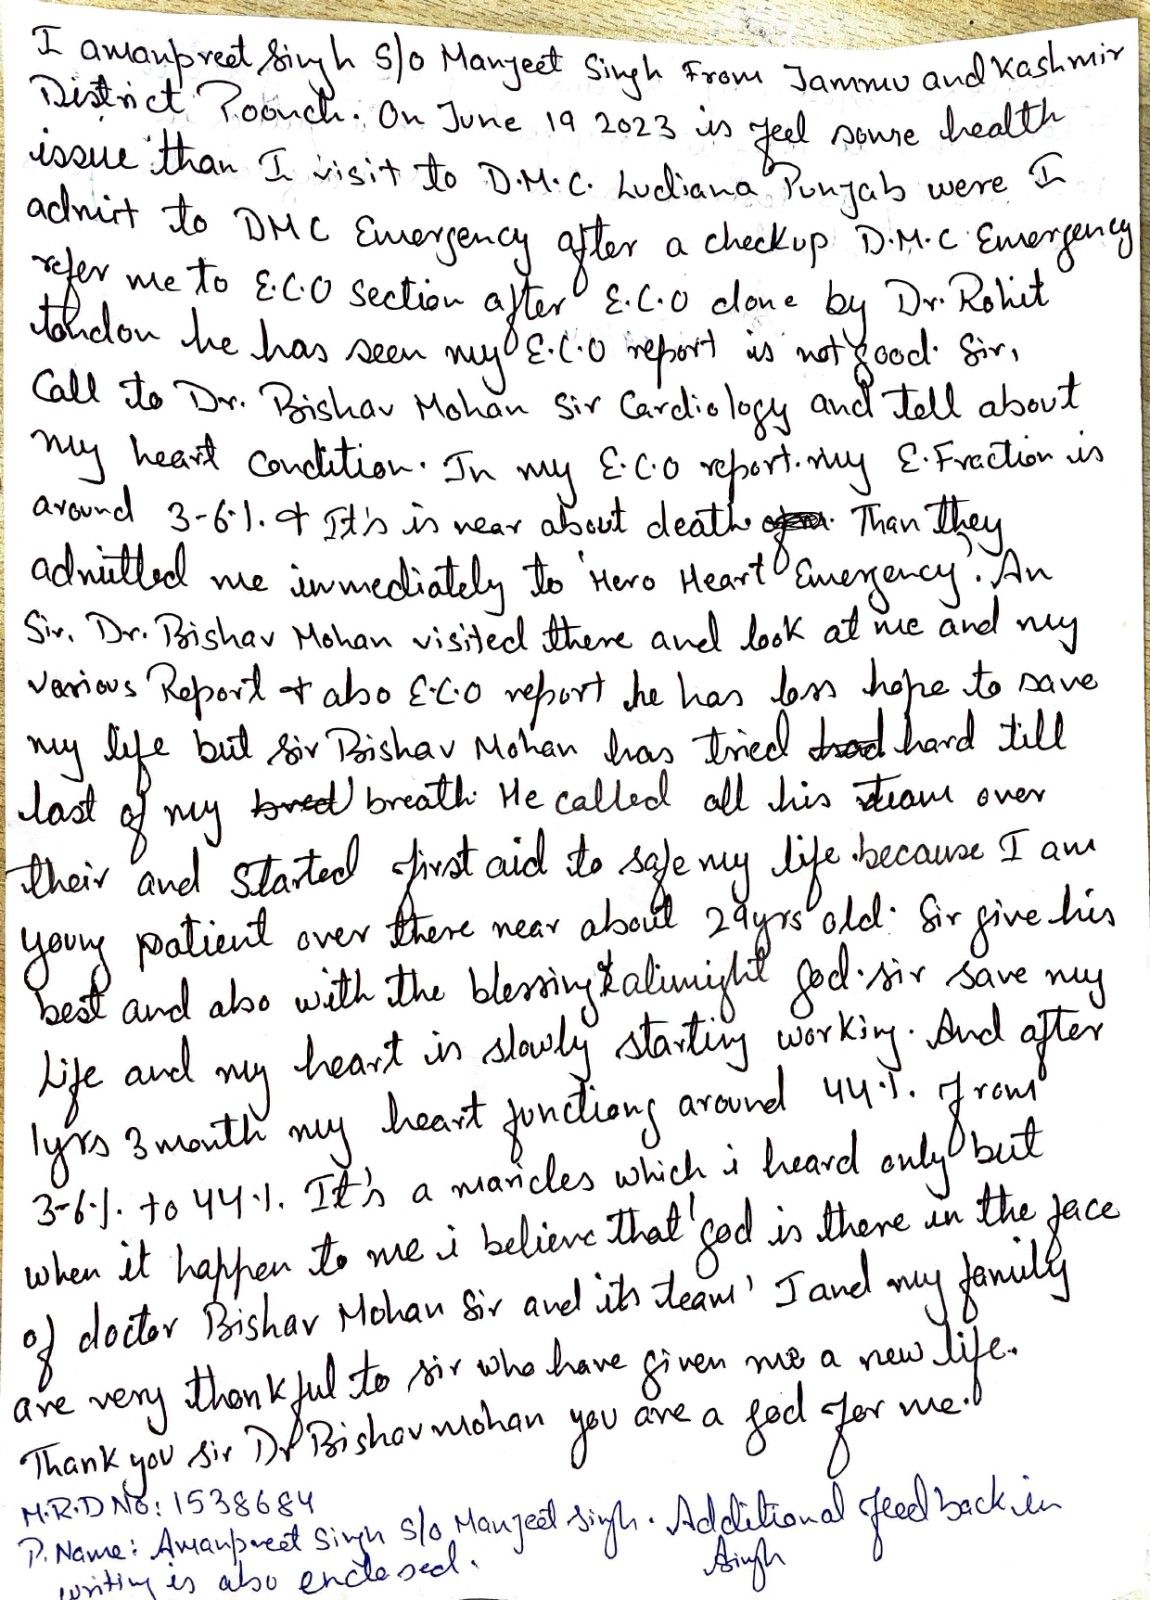 I amanpreet Singh S/o Manjeet Singh From Jammu and Kashmir
District Poonch. On June 19 2023 is feel some health
issue than I visit to D.M.C. Ludiana Punjab were I
admit to DMC Emergency after a checkup D.M.C Emergency
refer me to E.C.O section after E.C.O done by Dr. Rohit
tondon he has seen my E.C.O report is not good. Sir,
Call to Dr. Bishav Mohan Sir Cardiology and tell about
my heart condition. In my E.C.O report. my E. Fraction is
around 3-6%. & It's is near about death Than they
admitted me immediately to 'Hero Heart Emergency'. An
Sir, Dr. Bishav Mohan visited there and look at me and my
various Report & also E.C.O report he has loss hope to save
my life but Sir Bishav Mohan has tried hard till
last of my breath. He called all his team over
their and started first aid to safe my life because I am
young patient over there near about 29yrs old. Sir give his
best and also with the blessing & alimight god. sir save my
Life and my heart is slowly starting working. And after
1yrs 3 month my heart functions around 44%. from
3-6%. to 44%. It's a maricles which i heard only but
when it happen to me i believe that 'god is there in the face
of doctor Bishav Mohan Sir and its team' I and my family
are very thankful to sir who have given me a new life.
Thank you sir Dr Bishav mohan you are a god for me.
M.R.D No: 1538684
P. Name: Amanpreet Singh S/o Manjeet Singh. Additional feed back in
writing is also enclosed. Singh